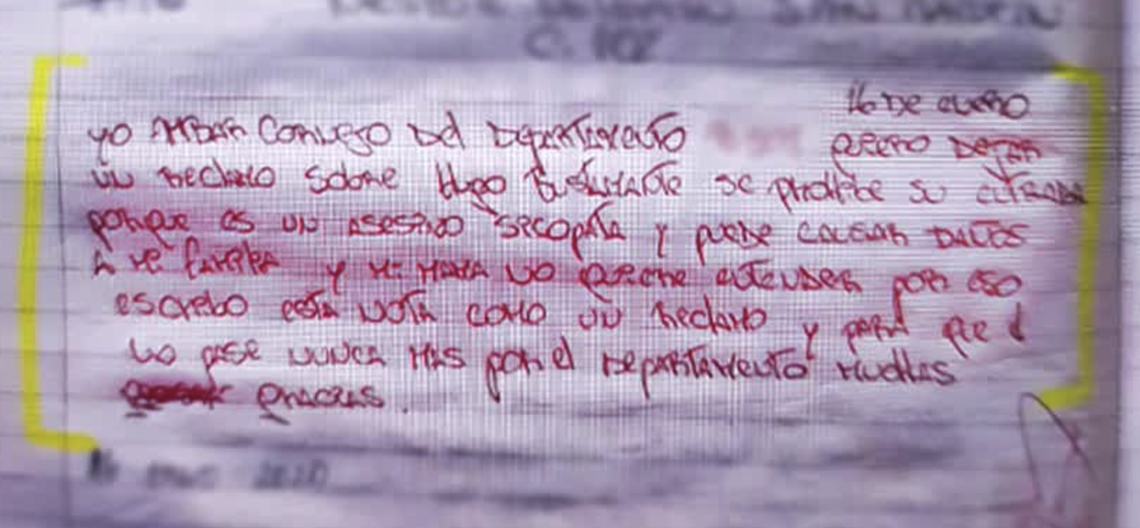 16 DE ENERO
yo Conversó Del DepARTAMENTO QUIERO DEJAR
UN Reclamo Sobre Hugo BUSTAMANTE Se prohíbe su ENTRADA
porque es un ASESINO SICOPATA Y puede CAUSAR DAÑOS
A MI FAMILIA Y MI MAMA NO QUIERE ENTENDER POR ESO
escribo ESTA NOTA COMO UN Reclamo y para que el
NO pase NUNCA MAS por el DepARTAMENTO MUCHAS
GRACIAS.
2020